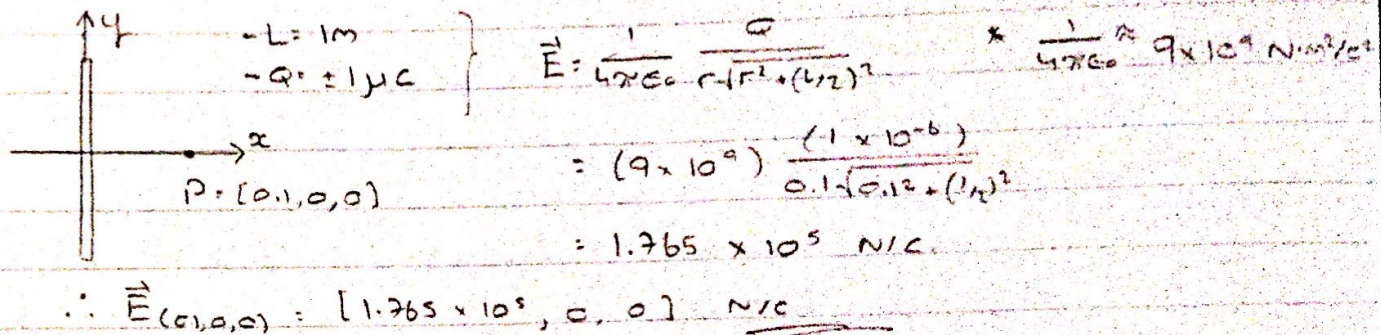 y
- L = 1m
- Q = ± 1 μC
E⃗ = 1/(4πε₀) Q/(r√(r² + (L/2)²))
* 1/(4πε₀) ≈ 9 x 10⁹ N·m²/C²
x
P = [0.1, 0, 0]
= (9 x 10⁹) (1 x 10⁻⁶)/(0.1√(0.1² + (1/2)²)
= 1.765 x 10⁵ N/C.
∴ E⃗(0.1,0,0) = [1.765 x 10⁵, 0, 0] N/C